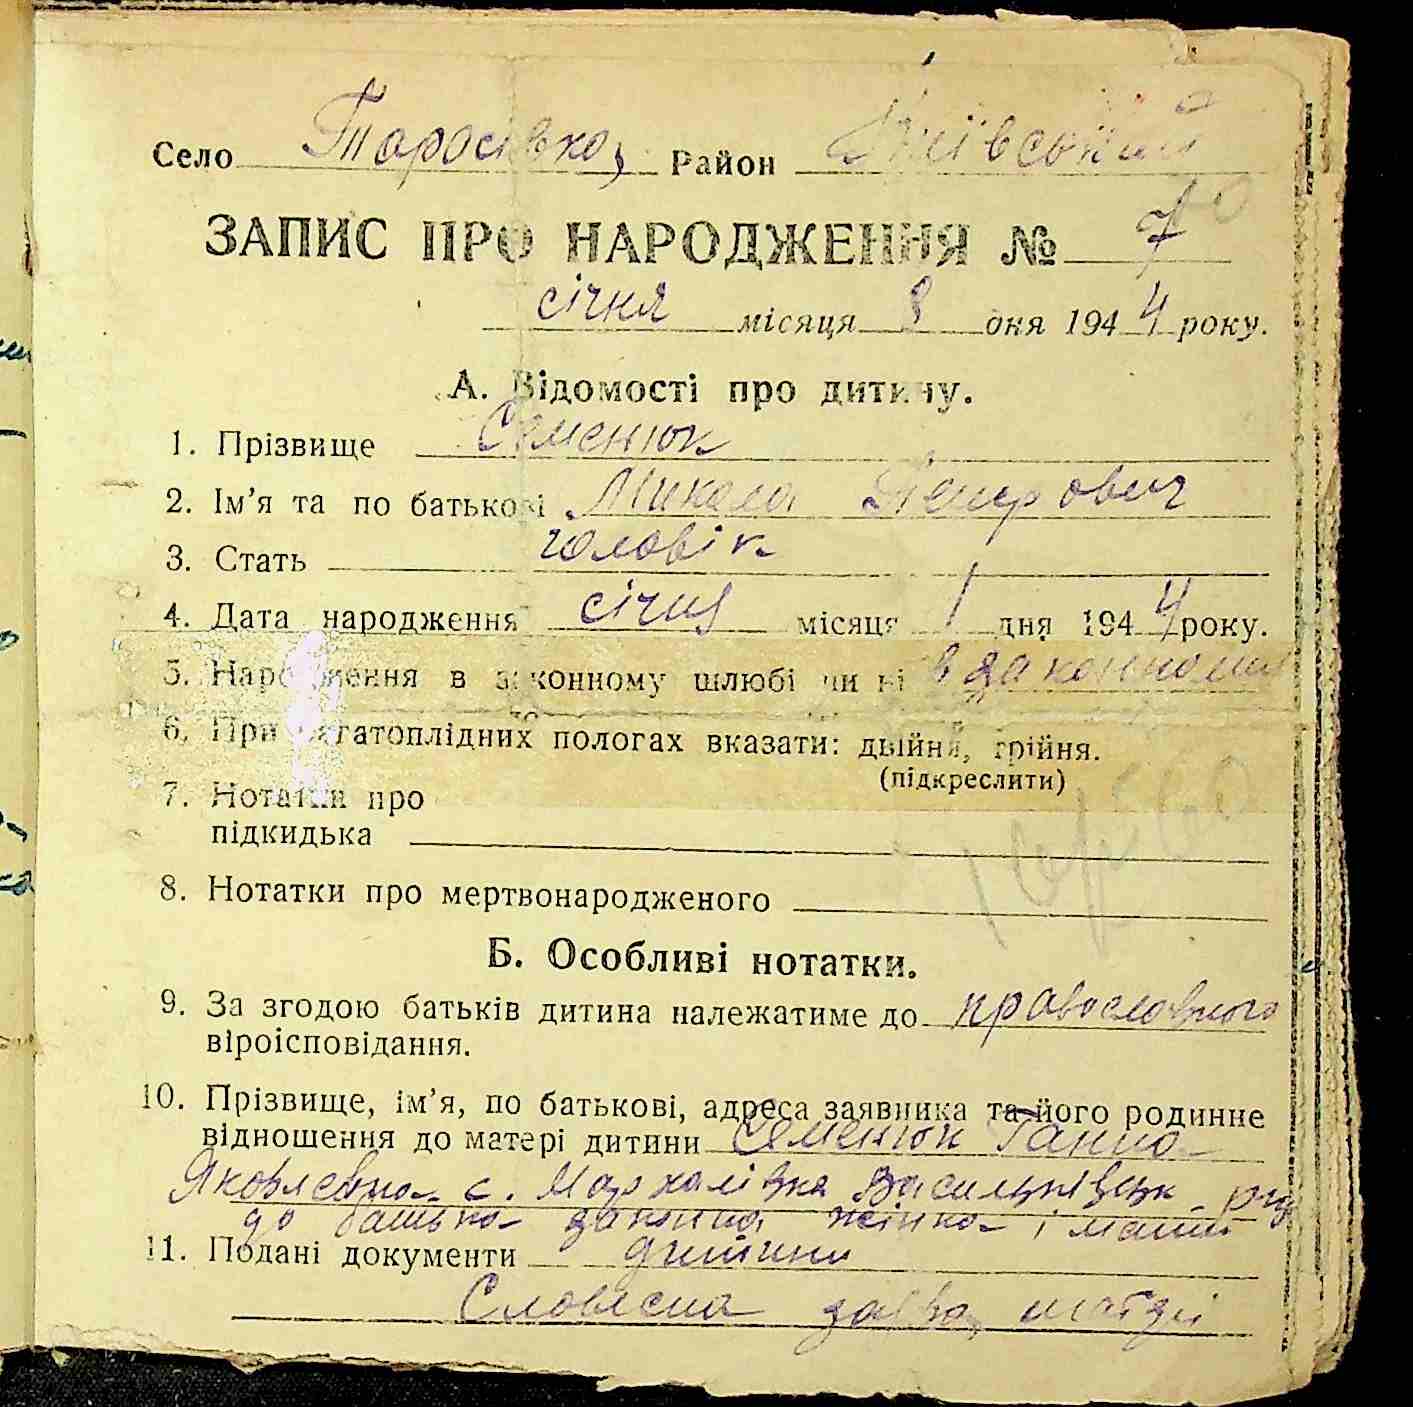 Село Тарасівка, Район Київський
ЗАПИС ПРО НАРОДЖЕННЯ № 7
січня місяця 8 дня 1944 року.
А. Відомості про дитину.
1. Прізвище Семенюк
2. Ім'я та по батькові Микола Петрович
3. Стать чоловік
4. Дата народження січня місяця 1 дня 1944 року.
5. Народження в законному шлюбі чи ні в законному
6. При багатоплідних пологах вказати: двійня, трійня.
(підкреслити)
7. Нотатки про
підкидька
8. Нотатки про мертвонародженого
Б. Особливі нотатки.
9. За згодою батьків дитина належатиме до православного
віроісповідання.
10. Прізвище, ім'я, по батькові, адреса заявника та його родинне
відношення до матері дитини Семенюк Ганна
Яковлевна с. Мархалівка Васильківськ. р-ну
до батька законна жінка і мати
11. Подані документи дитини
Словесна заява, матері